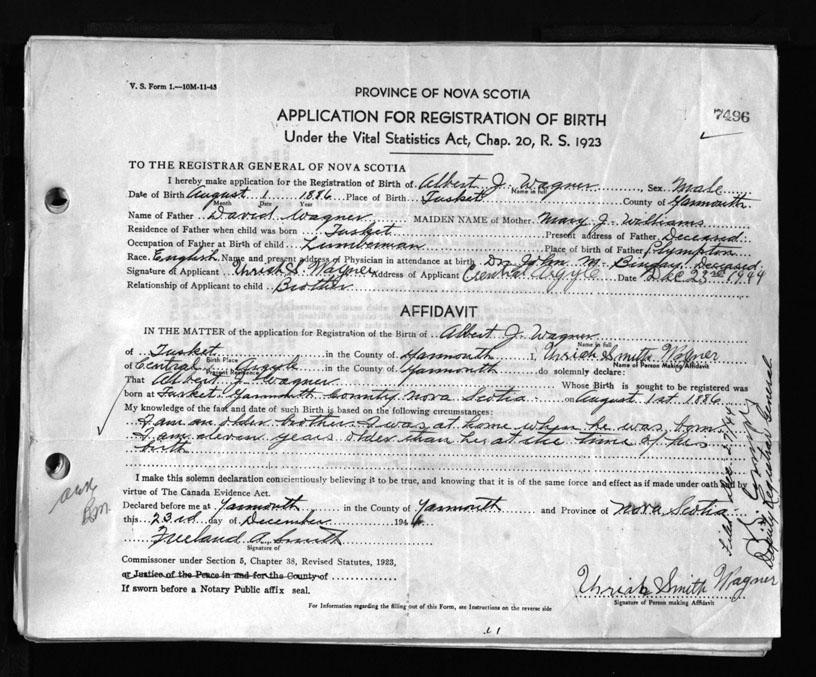 V. S. Form 1.—10M-11-43
PROVINCE OF NOVA SCOTIA
7496
APPLICATION FOR REGISTRATION OF BIRTH
Under the Vital Statistics Act, Chap. 20, R. S. 1923
TO THE REGISTRAR GENERAL OF NOVA SCOTIA
I hereby make application for the Registration of Birth of Albert J. Wagner, Sex Male
Name in full
Date of Birth August 1 1886 Place of Birth Tusket County of Yarmouth
Month Date Year
Name of Father David Wagner MAIDEN NAME of Mother Mary J. Williams
Residence of Father when child was born Tusket Present address of Father Deceased
Occupation of Father at Birth of child Lumberman Place of birth of Father Plympton
Race English Name and present address of Physician in attendance at birth Dr. John M. Bingay Deceased
Signature of Applicant Uriah S. Wagner Address of Applicant Central Argyle Date Dec 23rd 1944
Relationship of Applicant to child Brother
AFFIDAVIT
IN THE MATTER of the application for Registration of the Birth of Albert J. Wagner
Name in full
of Tusket in the County of Yarmouth I, Uriah Smith Wagner
Birth Place Name of Person Making Affidavit
of Central Argyle in the County of Yarmouth do solemnly declare:
Present Residence
That Albert J. Wagner Whose Birth is sought to be registered was
born at Tusket Yarmouth Country Nova Scotia on August 1st 1886
My knowledge of the fact and date of such Birth is based on the following circumstances:
I am an older brother. I was at home when he was born.
I am eleven years older than he at the time of his
birth
I make this solemn declaration conscientiously believing it to be true, and knowing that it is of the same force and effect as if made under oath and by
virtue of The Canada Evidence Act.
Declared before me at Yarmouth in the County of Yarmouth and Province of Nova Scotia
this 23rd day of December 1944
Freeland A. Smith
Signature of
Commissoner under Section 5, Chapter 38, Revised Statutes, 1923,
or Justice of the Peace in and for the County of
If sworn before a Notary Public affix seal.
Uriah Smith Wagner
Signature of Person making Affidavit
For Information regarding the filling out of this Form, see Instructions on the reverse side
Filed Dec. 27/44
Deputy Registrar General